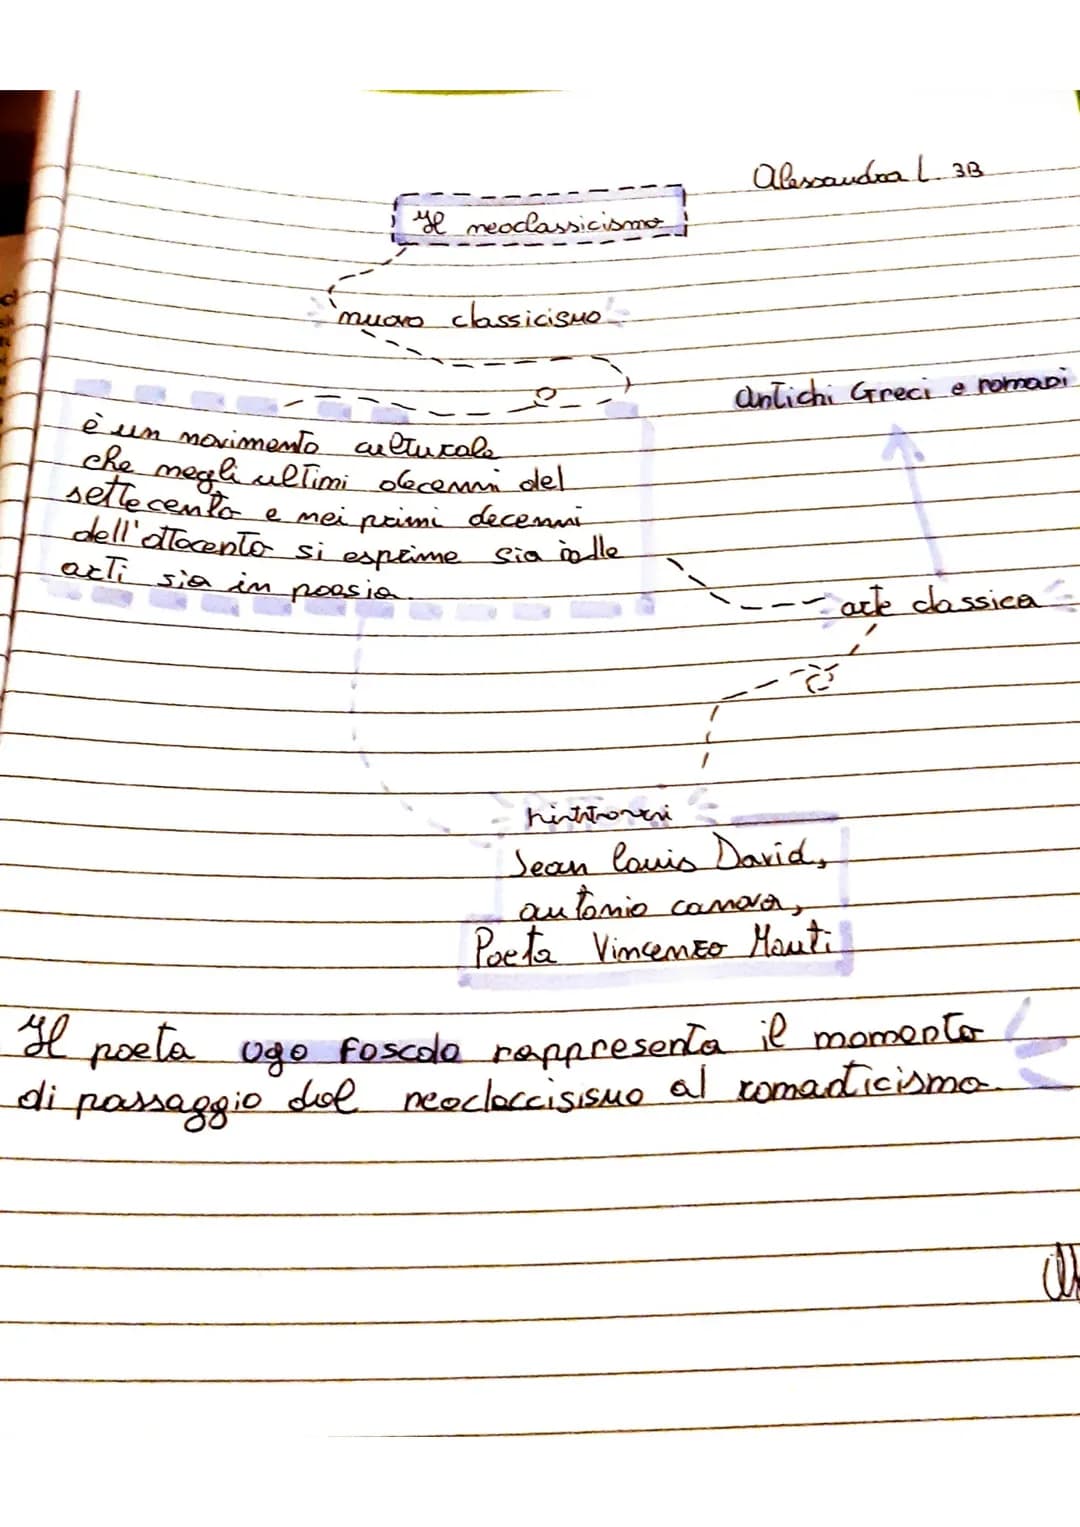 Alessandra L. 3B
Il neoclassicismo
nuovo classicismo
antichi Greci e romani
è un movimento culturale
che negli ultimi decenni del
settecento e nei primi decenni
dell'ottocento si esprime sia
arti sia in poesia.
arte classica
Jean louis David,
antonio canova,
Poeta Vincenzo Monti
Il poeta ugo foscolo rappresenta il momento
di passaggio dal neoclaccisismo al romanticismo.